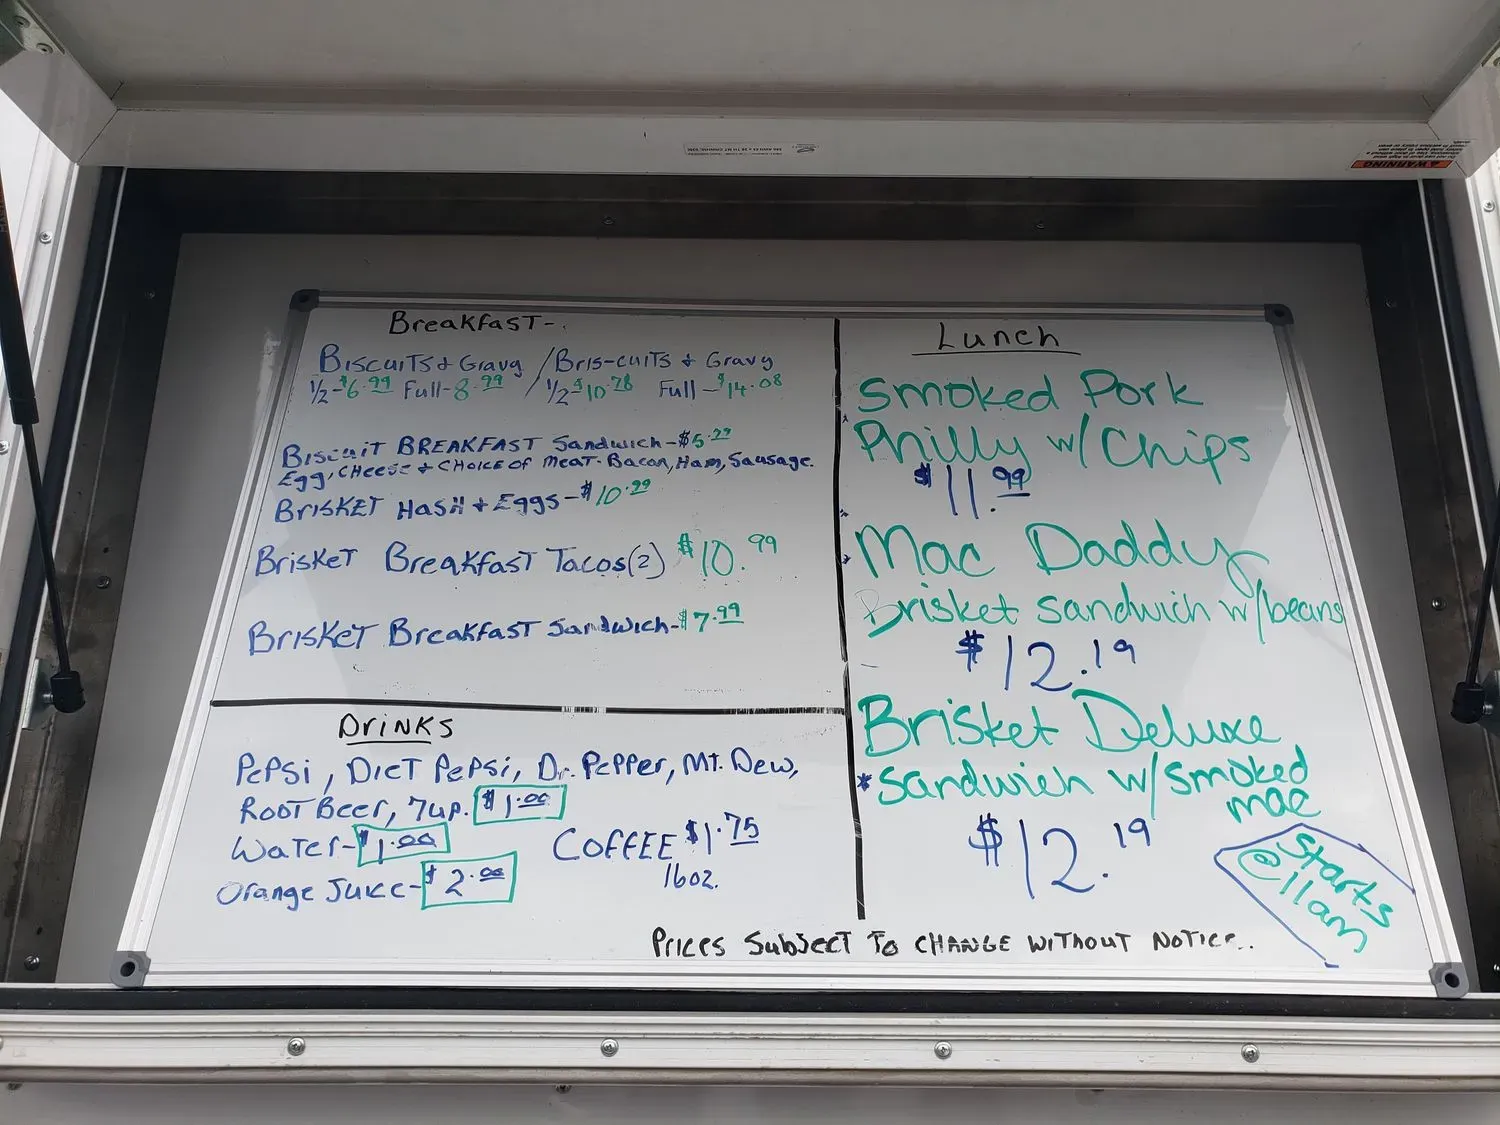 WARNING
Breakfast-
Biscuits & Gravy / Bris-cuits & Gravy
1/2-$6.99 Full-8.99 / 1/2-$10.78 Full-$14.08
Biscuit BREAKFAST Sandwich-$5.99
Egg, CHeese & CHOICE OF Meat- Bacon, Ham, Sausage.
BRISKET Hash & Eggs-$10.99
Brisket Breakfast Tacos(2) $10.99
Brisket Breakfast Sandwich-$7.99
Drinks
Pepsi, Diet Pepsi, Dr. Pepper, Mt. Dew,
Root Beer, 7up. $1.00
Water-$1.00
Orange Juice-$2.00
COFFEE $1.75
16oz.
Lunch
Smoked Pork
Philly w/Chips
$11.99
Mac Daddy
Brisket Sandwich w/beans
$12.19
Brisket Deluxe
*Sandwich w/smoked
mac
$12.19
Starts
@11am
Prices Subject To CHANGE WITHOUT NOTICE..